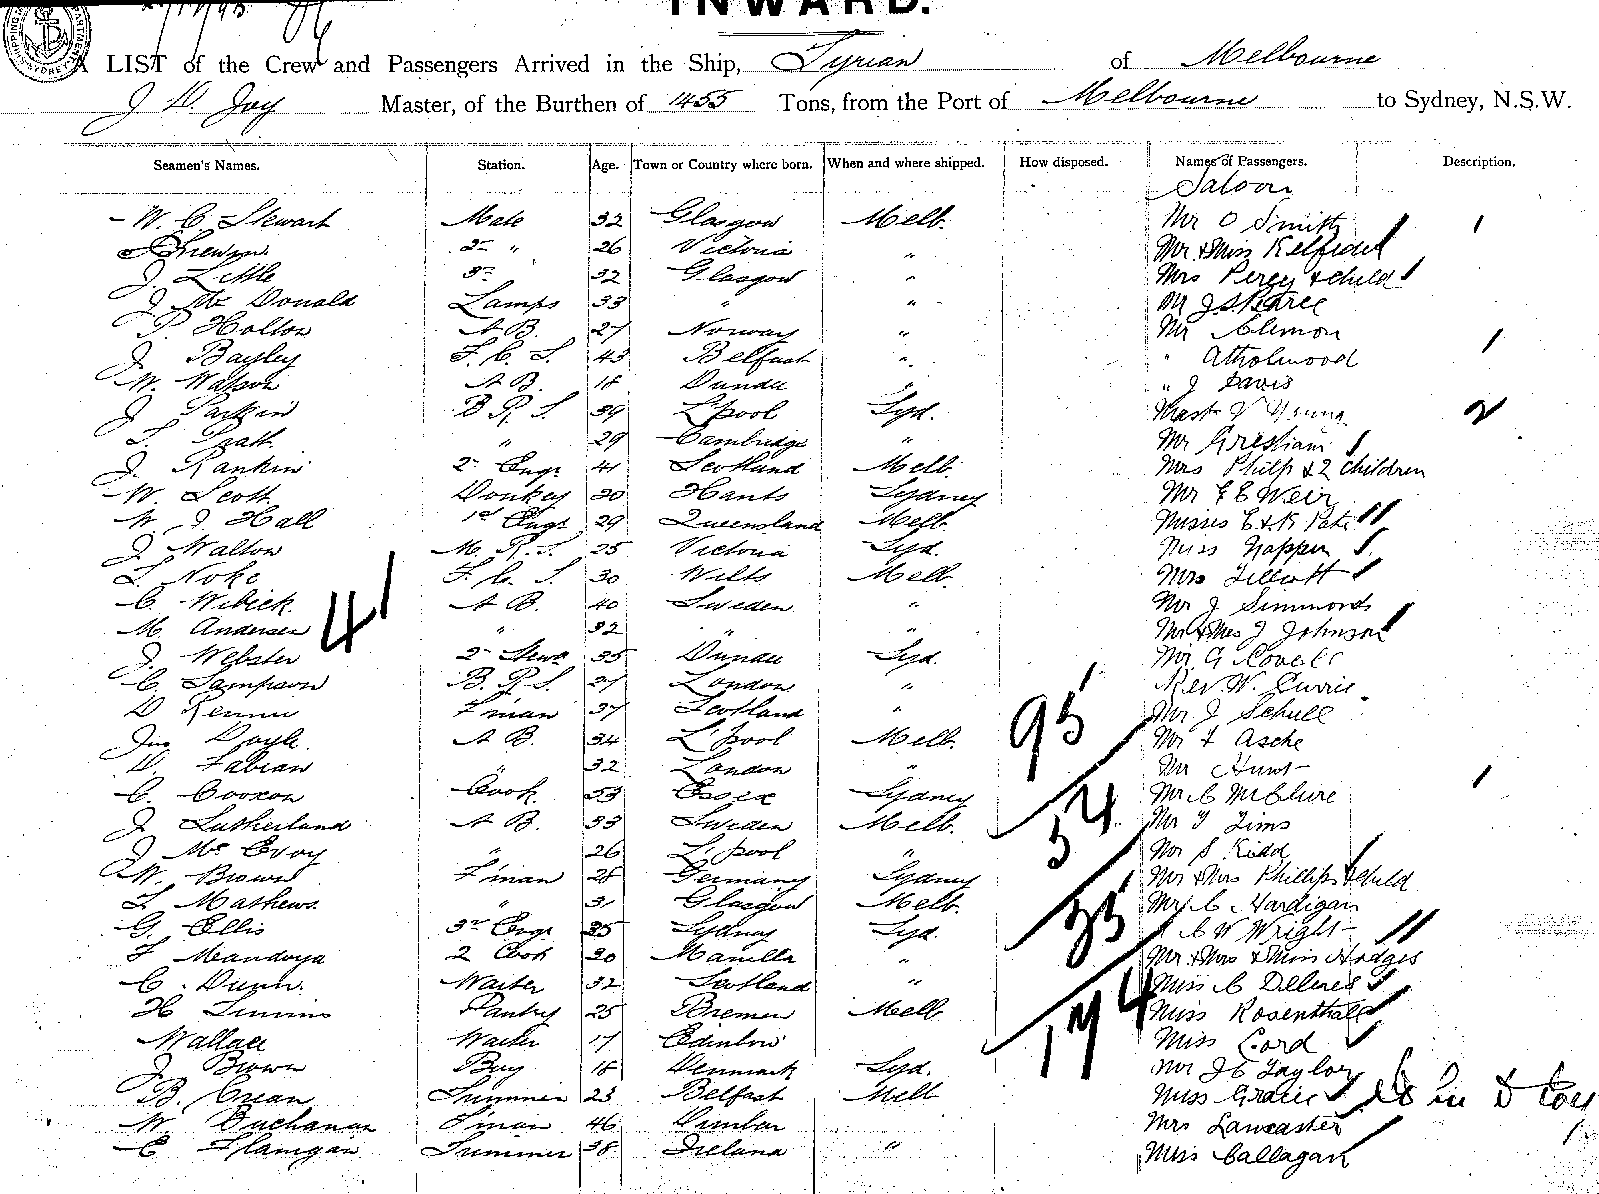 INWARD.
A LIST of the Crew and Passengers Arrived in the Ship, Syrian of Melbourne
J D Joy Master, of the Burthen of 1455 Tons, from the Port of Melbourne to Sydney, N.S.W.
Seamen's Names. Station. Age. Town or Country where born. When and where shipped. How disposed. Names of Passengers. Description.
Saloon
W. C. Stewart Mate 32 Glasgow Melb. Mr O Smith 1
2nd " 26 Victoria " Mr & Miss
J Little 3rd 32 Glasgow " Mrs Percy & child
J Mc Donald Lamps 33 " " Mr J S Pearce
P. Holton A B. 27 Norway " Mr Clemon
J Bayley F. C. S. 43 Belfast " " Atholwood 1
W. Watson A B. 18 Dundee " J Davis
J Parkin B R S. 39 L'pool Syd. Mast V Young 2
T. Pratt " 29 Cambridge " Mr Gresham
J. Rankin 2nd Engr 41 Scotland Melb. Mrs Philp & 2 children
W. Scott Donkey 30 Hants Sydney Mr E E Weir
W J Hall 1st Engr 29 Queensland Melb. Misses E & K Pate
J Walton M. R. S. 25 Victoria Syd. Miss Happer
L Noke F. C. S. 30 Wilts Melb. Mrs Elliott
C. Wibick A B. 40 Sweden " Mr J Simmonds
41
M. Andersen " 32 " " Mr & Mrs J Johnson
J. Webster 2nd Stew 35 Dundee Syd. Mr G
C. Sampson B. R. S. 27 London " Rev. W. Currie
D Rennie F'man 37 Scotland " Mr J Schule
95
Jno Doyle A B. 34 L'pool Melb. Mr F Asche
D. Fabian " 32 London " Mr Hunt
C. Cooxon Cook. 53 Essex Sydney Mr C McClure 1
54
J Sutherland A B. 33 Sweden Melb. Mr T Tims
J Mc Evoy " 26 L'pool " Mr S Kidd
W. Brown F'man 28 Germany Sydney Mr & Mrs Phillips & child
L Mathews. " 31 Glasgow Melb. Mr C Hardigan
G. Ellis 3rd Engr 35 Sydney Syd. C W Wright
F Meandoya 2 Cook 30 Manilla " Mr & Mrs & Miss Hodges
C. Dunn. Waiter 32 Scotland " Miss C
H Timms Pantry 25 Bremen Melb Miss Rosenthall
Wallace Waiter 17 Edinbow' Miss Cord
J Brown Boy 18 Denmark Syd. Mr J E Taylor
B. Crean Trimmer 23 Belfast Melb Miss Gracie
W Buchanan F'man 46 Dunbar Mrs Lancaster
E Flanigan Trimmer 38 Ireland " Miss Callagan